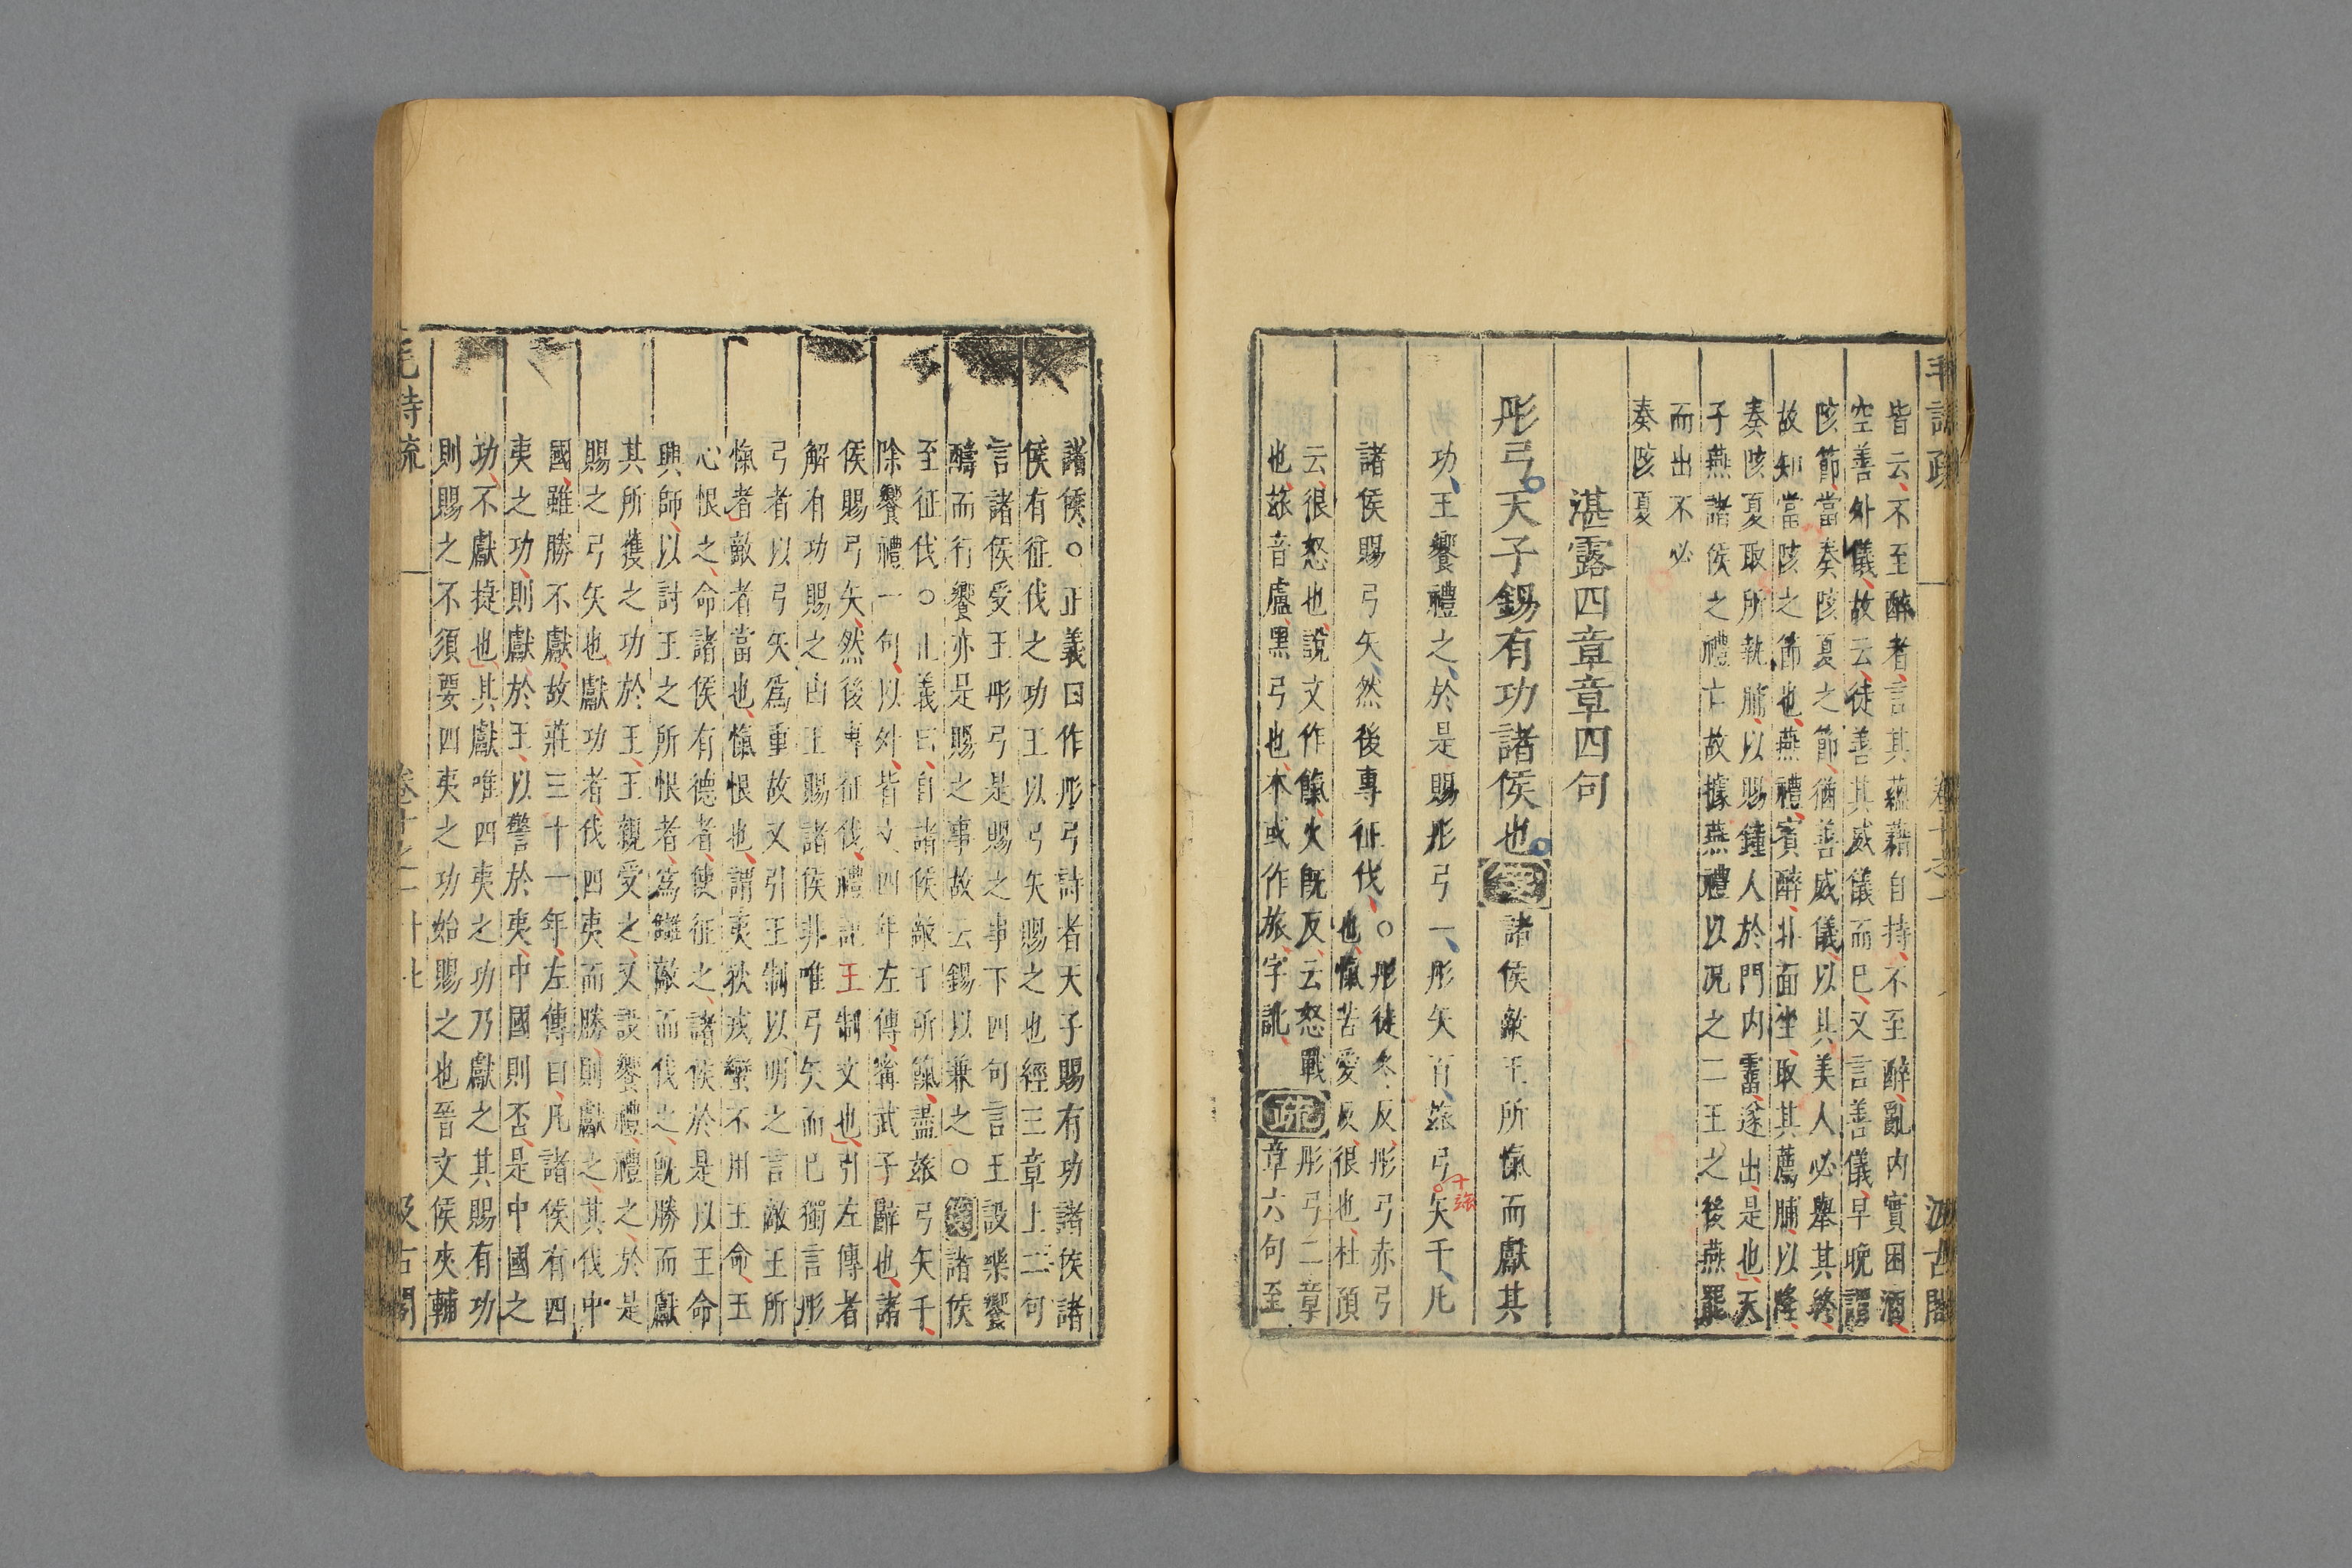 皆云不至醉者言其蘊藉自持不至醉亂内實困酒
空善外儀故云徒善其威儀而已又言善儀早晚謂
陔節當奏陔夏之節猶善威儀以其美人必舉其終
故知當陔之節也燕禮賓醉北面坐取其薦脯以降
奏陔夏取所執脯以賜鍾人於門内霤遂出是也天
子燕諸侯之禮亡故據燕禮以况之二王之後燕罷
而出不必
奏陔夏
湛露四章章四句
彤弓天子錫有功諸侯也箋諸侯敵王所愾而獻其
功王饗禮之於是賜彤弓一彤矢百玈弓矢千凡
十玈
諸侯賜弓矢然後專征伐○彤徒冬反彤弓赤弓
也愾苦愛反很也杜預
云很怒也說文作鎎火既反云怒戰
也玈音盧黑弓也本或作旅字訛疏彤弓二章
章六句至
諸侯○正義曰作彤弓詩者天子賜有功諸侯諸
侯有征伐之功王以弓矢賜之也經三章上二句
言諸侯受王彤弓是賜之事下四句言王設樂饗
醻而行饗亦是賜之事故云錫以兼之○箋諸侯
至征伐○正義曰自諸侯敵王所愾盡玈弓矢千
除饗禮一句以外皆文四年左傳甯武子辭也諸
侯賜弓矢然後專征伐禮記王制文也引左傳者
解有功賜之由王賜諸侯非唯弓矢而已獨言彤
弓者以弓矢爲重故又引王制以明之言敵王所
愾者敵者當也愾恨也謂夷狄戎蠻不用王命王
心恨之命諸侯有德者使征之諸侯於是以王命
興師以討王之所恨者爲讎敵而伐之既勝而獻
其所獲之功於王王親受之又設饗禮禮之於是
賜之弓矢也獻功者伐四夷而勝則獻之其伐中
國雖勝不獻故莊三十一年左傳曰凡諸侯有四
夷之功則獻於王以警於夷中國則否是中國之
功不獻捷也其獻唯四夷之功乃獻之其賜有功
則賜之不須要四夷之功始賜之也晉文侯夾輔
毛詩疏 卷十之一 十七 汲古閣